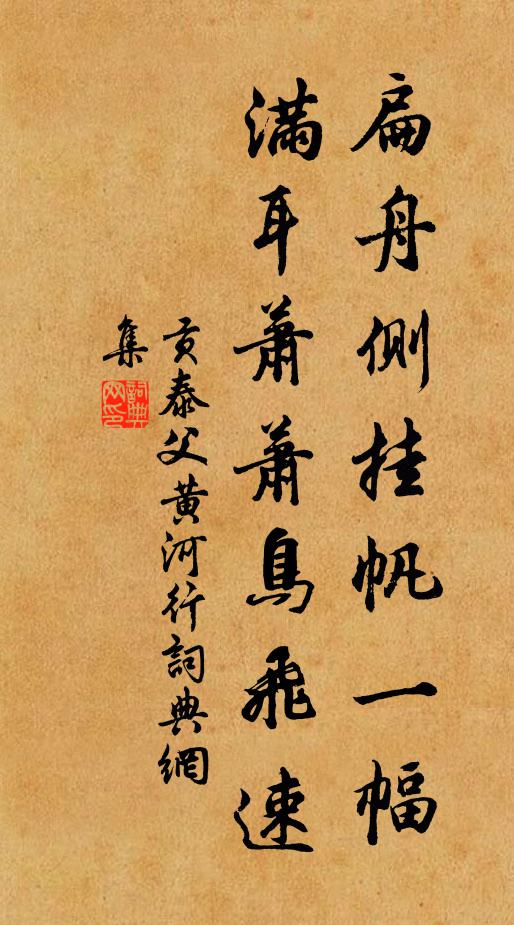 扁舟側挂帆一幅
滿耳蕭蕭鳥飛速
貢泰父黃河行詞典網
集
詞典網印